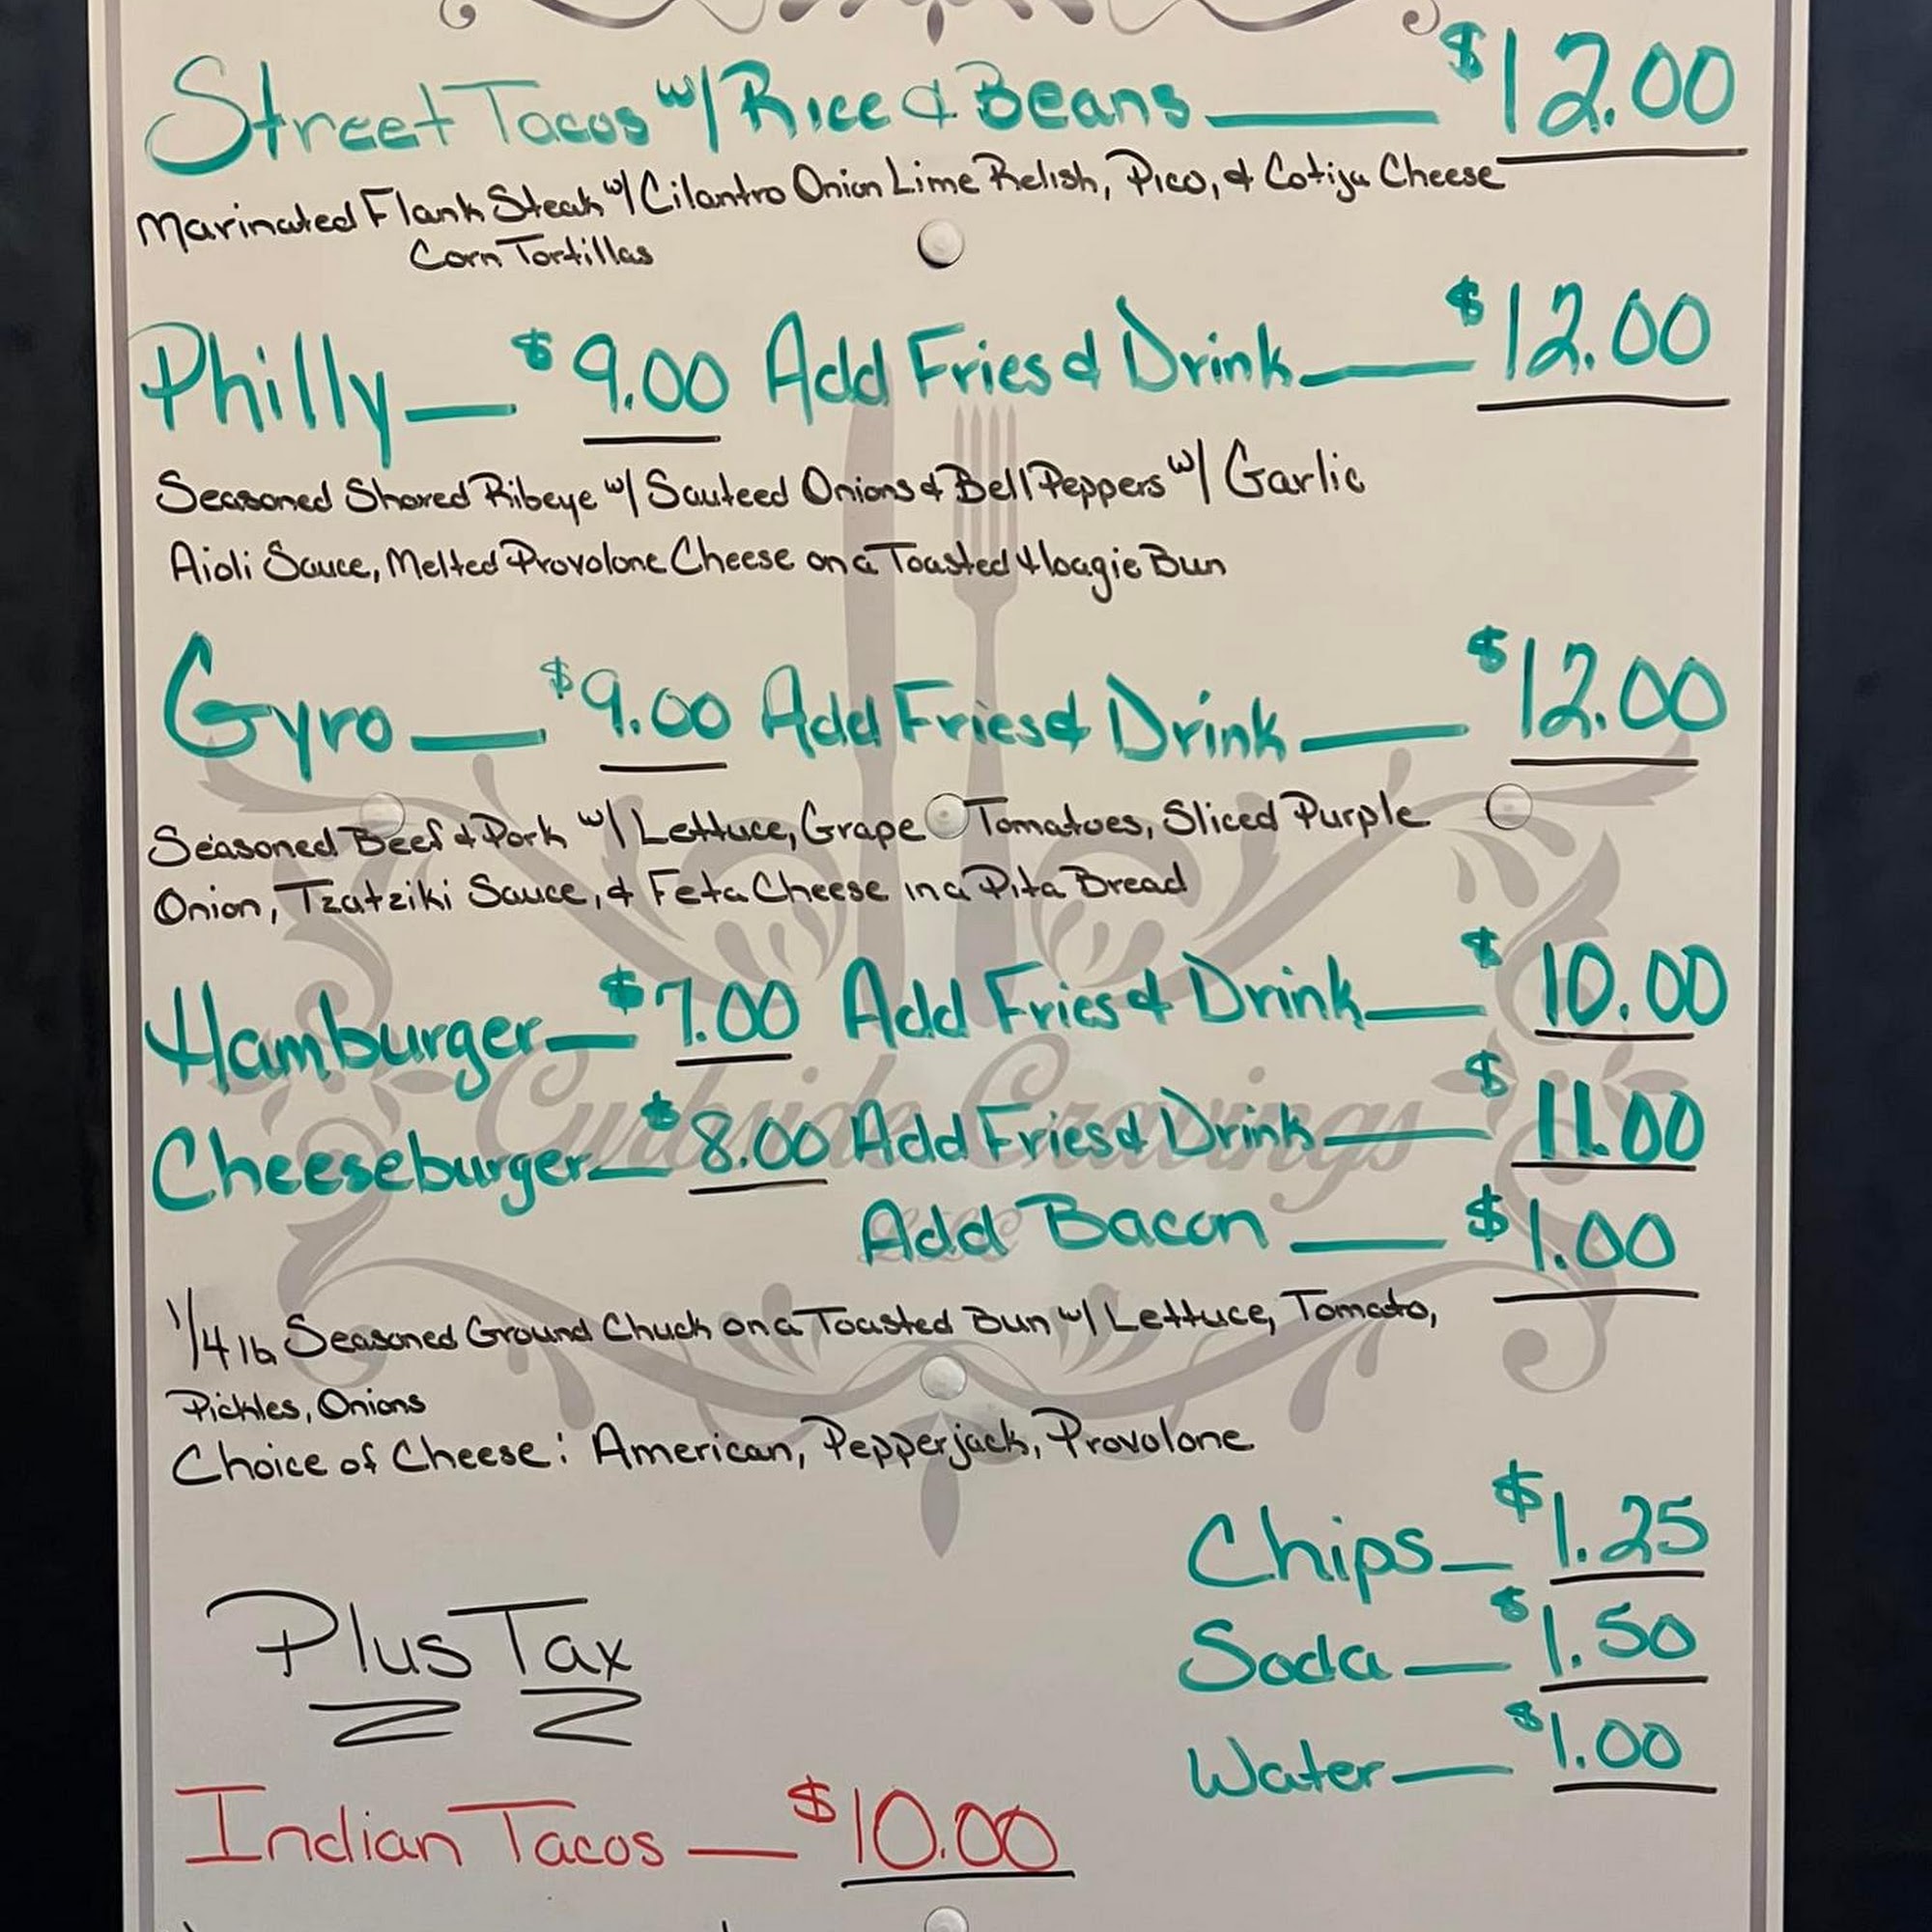 Street Tacos w/ Rice & Beans $12.00
Marinated Flank Steak w/ Cilantro Onion Lime Relish, Pico, & Cotija Cheese
Corn Tortillas
Philly $9.00 Add Fries & Drink $12.00
Seasoned Shaved Ribeye w/ Sauteed Onions & Bell Peppers w/ Garlic
Aioli Sauce, Melted Provolone Cheese on a Toasted Hoagie Bun
Gyro $9.00 Add Fries & Drink $12.00
Seasoned Beef & Pork w/ Lettuce, Grape Tomatoes, Sliced Purple
Onion, Tzatziki Sauce, & Feta Cheese in a Pita Bread
Hamburger $7.00 Add Fries & Drink $10.00
Curbside Cravings
Cheeseburger $8.00 Add Fries & Drink $11.00
Add Bacon $1.00
1/4 lb Seasoned Ground Chuck on a Toasted Bun w/ Lettuce, Tomato,
Pickles, Onions
Choice of Cheese: American, Pepperjack, Provolone
Chips $1.25
Plus Tax
Soda $1.50
Water $1.00
Indian Tacos $10.00